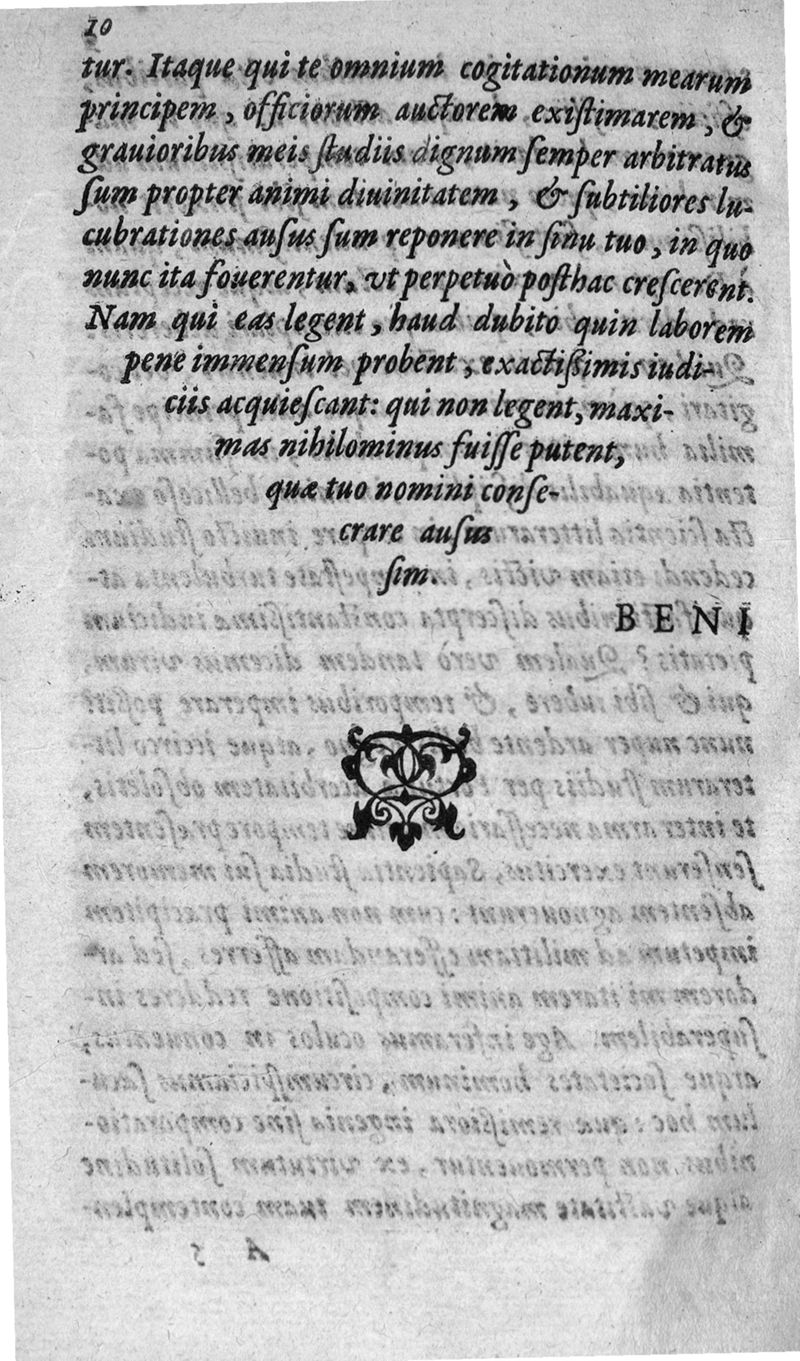 10
tur. Itaque qui te omnium cogitationum mearum
principem, officiorum auctorem exiſtimarem, &
grauioribus meis ſtudiis dignum ſemper arbitratus
ſum propter animi diuinitatem, & ſubtiliores lu-
cubrationes auſus ſum reponere in ſinu tuo, in quo
nunc ita fouerentur, vt perpetuò poſthac creſcerent.
Nam qui eas legent, haud dubito quin laborem
pene immenſum probent, exactiſſimis iudi-
ciis acquieſcant: qui non legent, maxi-
mas nihilominus fuiſſe putent,
quæ tuo nomini conſe-
crare auſus
ſim.
BENI